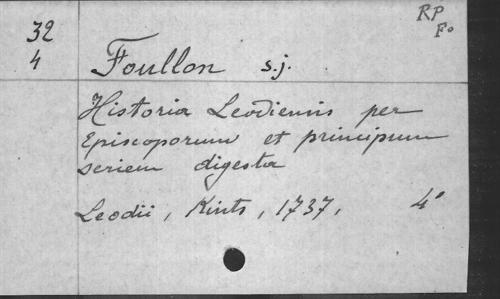 32
4
RP
Fo
Foullon s.j.
Historia Leodiensis per
Episcoporum et principum
seriem digesta
Leodii, Kints, 1737, 4°